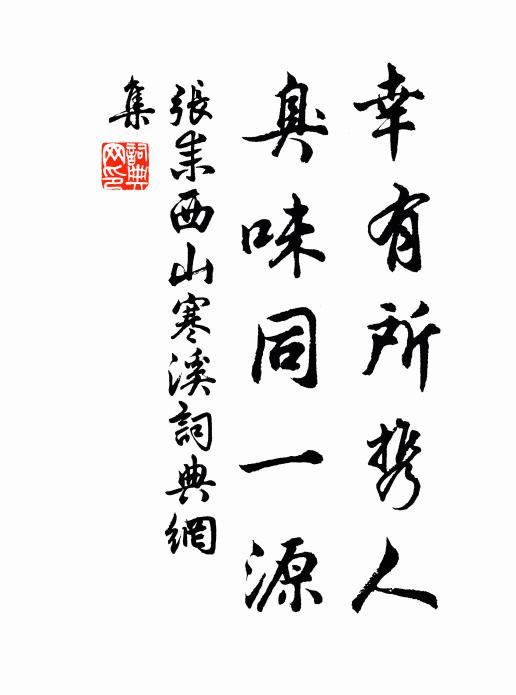 幸有所携人
臭味同一源
張耒西山寒溪詞典網
集
詞典网印